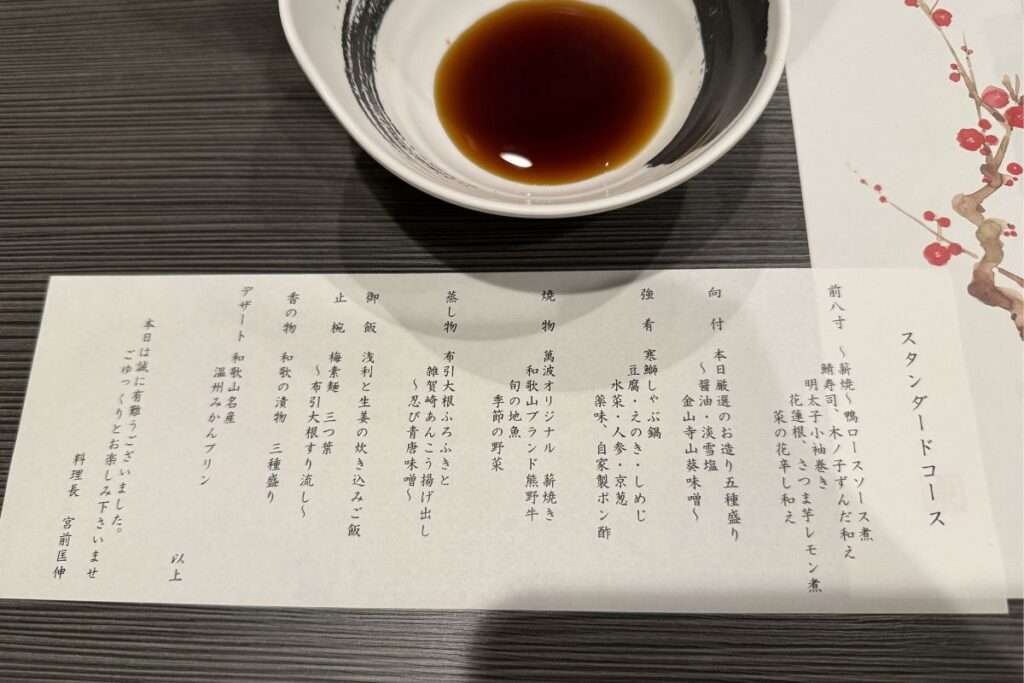 スタンダードコース
前八寸　～薪焼～鴨ロースソース煮
鯖寿司、木ノ子ずんだ和え
明太子小袖巻き
花蓮根、さつま芋レモン煮
菜の花辛し和え
向　付　本日厳選のお造り五種盛り
～醤油・淡雪塩
金山寺山葵味噌～
強　肴　寒鰤しゃぶ鍋
豆腐・えのき・しめじ
水菜・人参・京葱
薬味、自家製ポン酢
焼　物　萬波オリジナル　薪焼き
和歌山ブランド熊野牛
旬の地魚
季節の野菜
蒸し物　布引大根ふろふきと
雑賀崎あんこう揚げ出し
～忍び青唐味噌～
御　飯　浅利と生姜の炊き込みご飯
止　椀　梅素麺　三つ葉
～布引大根すり流し～
香の物　和歌の漬物　三種盛り
デザート　和歌山名産
温州みかんプリン
以上
本日は誠に有難うございました。
ごゆっくりとお楽しみ下さいませ
料理長　宮前匡伸